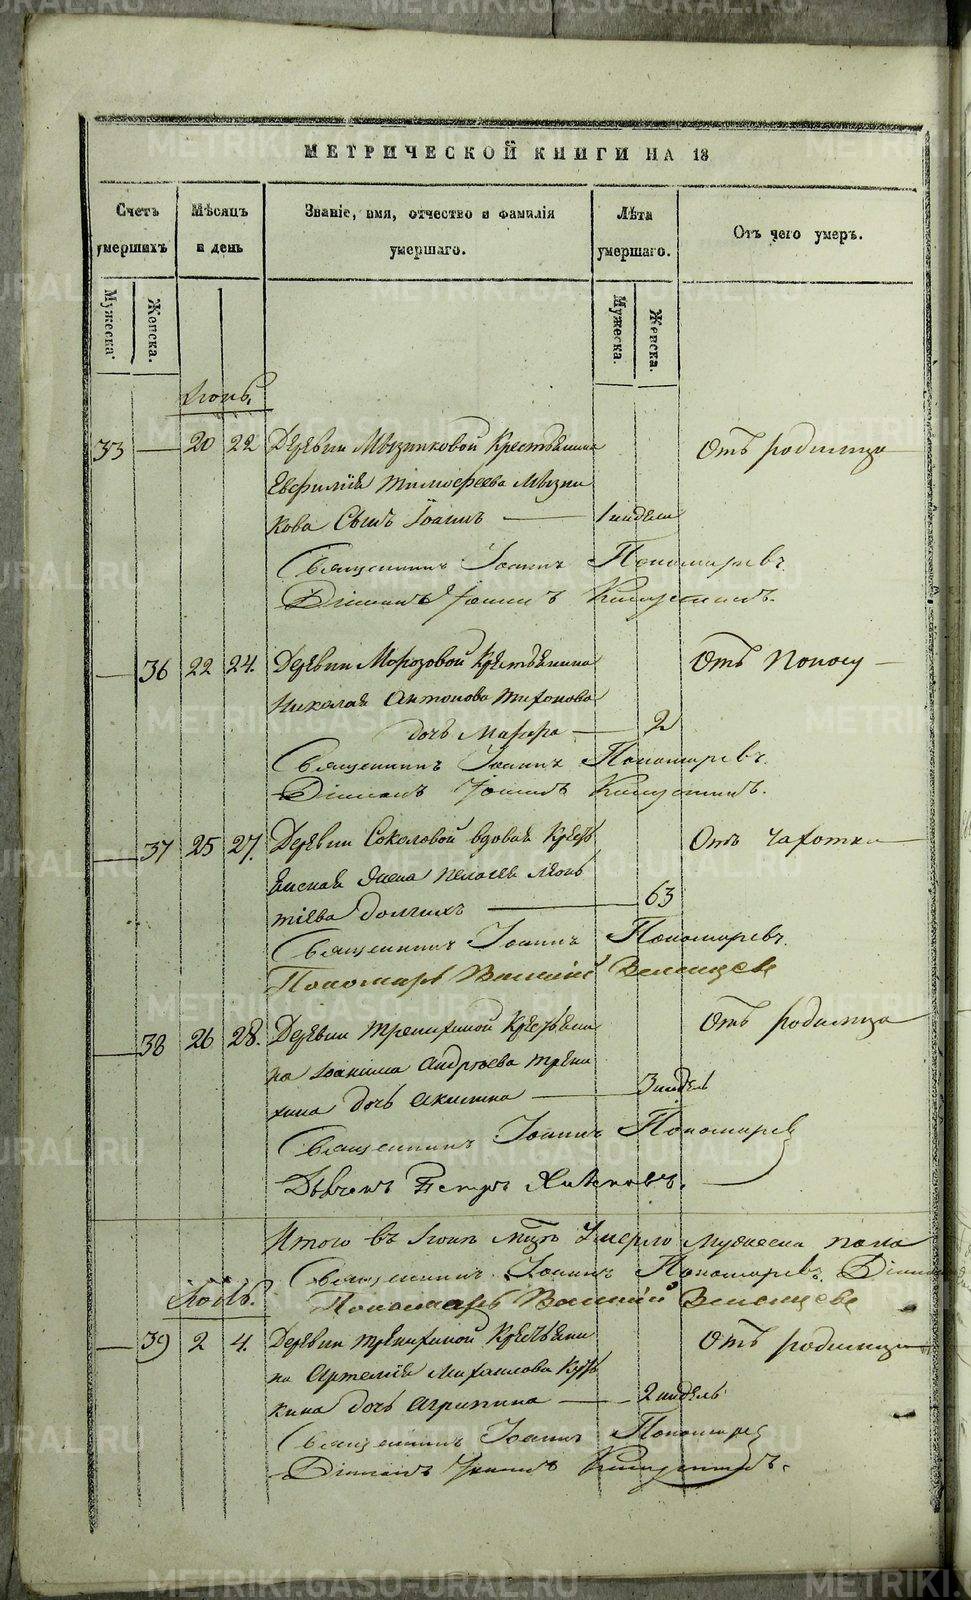 МЕТРИЧЕСКОЙ КНИГИ НА 18
Счетъ умершихъ
Мѣсяцъ и день
Званіе, имя, отчество и фамилія умершаго.
Лѣта умершаго.
Отъ чего умеръ.
Мужеска.
Женска.
Мужеска.
Женска.
Іюнь.
33 20 22 Деревни Мызниковой Крестьянина Отъ родимца
Евфимія Тимофеева Мызни
кова Сынъ Іоаннъ 1 недели
Священникъ Іоаннъ Пономаревъ.
Діаконъ Іоаннъ
36 22 24. Деревни Морозовой Крестьянина Отъ Поносу
Николая Антонова Тихонова
дочь Марфа 2
Священникъ Іоаннъ Пономаревъ.
Діаконъ Іоаннъ
37 25 27. Деревни Соколовой вдовая Крестъ Отъ Чахотки
янская Жена Пелагея Леонь
тіева Долгихъ 63
Священникъ Іоаннъ Пономаревъ.
Пономарь Василій
38 26 28. Деревни Трепихиной Крестьяни Отъ родимца
на Іоакима Андреева Трепи
хина дочь Акилина 3 недел
Священникъ Іоаннъ Пономарев
Дьячекъ Петръ
Итого въ Іюнѣ Умерло Мужеска пола
Священникъ Іоаннъ Пономаревъ.
Пономарь Василій
Іюль.
39 2 4. Деревни Трепихиной Крестьяни Отъ родимца
на Артемія Михаилова
кина дочь Агрипина 2 недель
Священникъ Іоаннъ Пономарев
Діаконъ Іоаннъ
METRIKI.GASO-URAL.RU